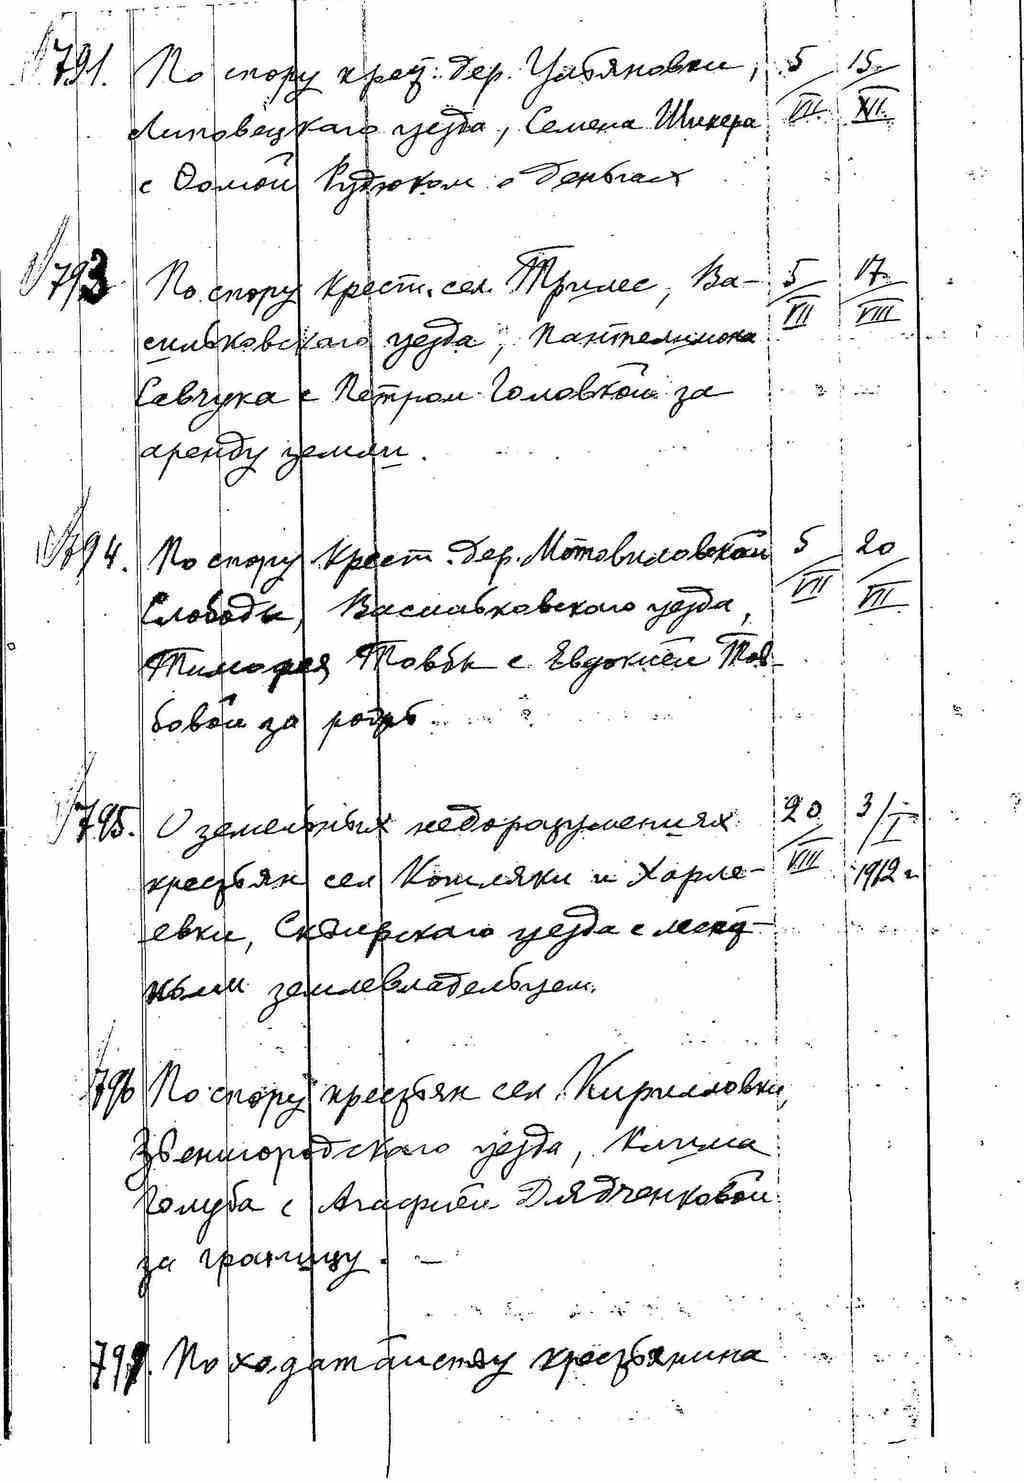 791. По спору крест. дер. Ульяновки, 5/VII 15/XII.
Липовецкаго уезда, Семена Шикера
с Фомой Рудюком о деньгах
793 По спору крест. сел. Трилес, Ва- 5/VII 17/VIII
сильковскаго уезда, Пантелимона
Савчука с Петром Головкой за
аренду земли.
794. По спору крест. дер. Мотовиловской 5/VII 20/VII
Слободы, Васильковского уезда,
Тимофея Товбы с Евдокией Тов-
бовой за
795. О земельных недоразумениях 20/VIII 3/I
крестьян сел Кошляки и Харле- 1912 г.
евки, Сквирскаго уезда с мест-
ным землевладельцем.
796 По спору крестьян сел. Кирилловки,
Звенигородскаго уезда, Клима
Голуба с Агафией Дядченковой
за границу. —
799. По ходатайству крестьянина